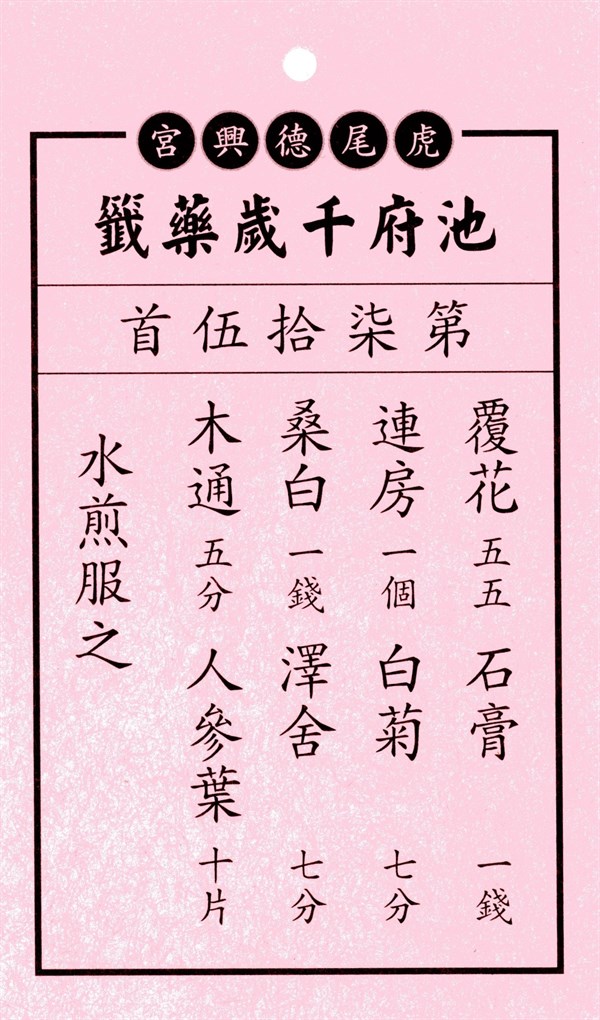 虎尾德興宮
池府千歲藥籤
第柒拾伍首
覆花 五五 石膏 一錢
連房 一個 白菊 七分
桑白 一錢 澤舍 七分
木通 五分 人參葉 十片
水煎服之